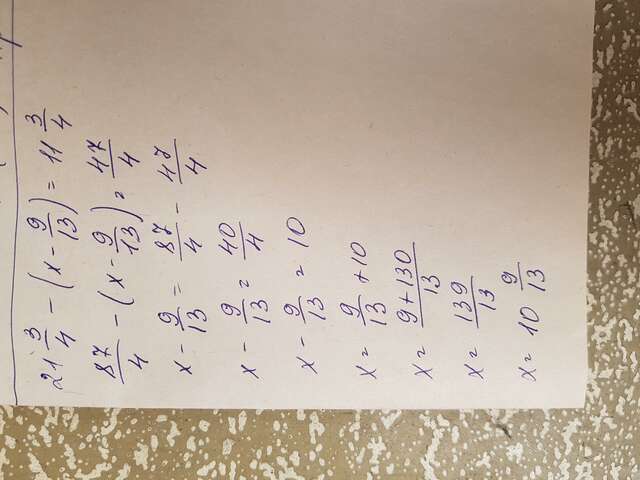 21 3/4 - (x - 9/13) = 11 3/4
87/4 - (x - 9/13) = 47/4
x - 9/13 = 87/4 - 47/4
x - 9/13 = 40/4
x - 9/13 = 10
x = 9/13 + 10
x = 9+130/13
x = 139/13
x = 10 9/13